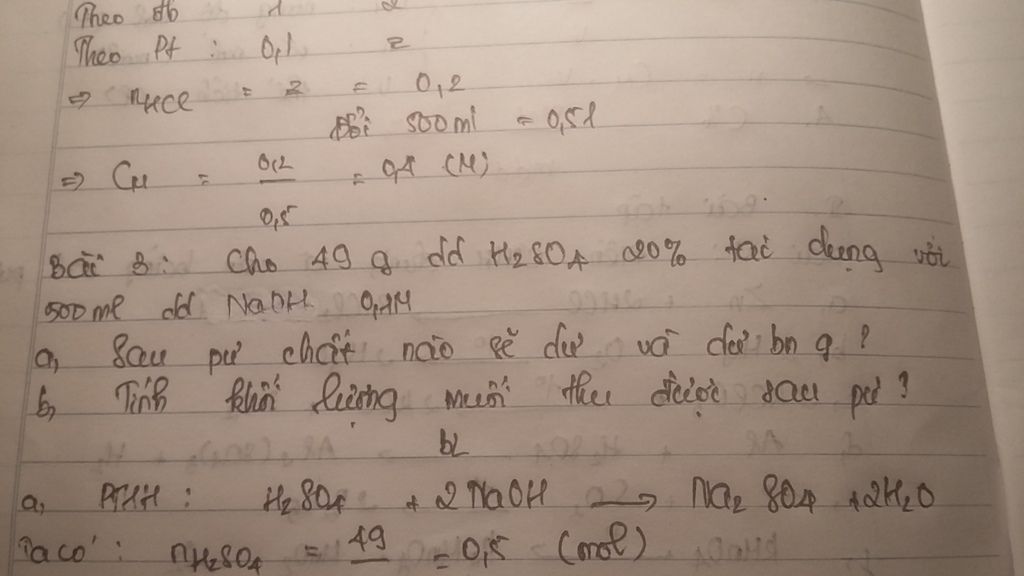 Theo đb 1 2
Theo Pt : 0,1 z
=> nHCl = z = 0,2
Đổi 500ml = 0,5l
=> CM = 0,2 / 0,5 = 0,4 (M)
Bài 3: Cho 49 g dd H2SO4 20% tác dụng với
500ml dd NaOH 0,4M
a, Sau pư chất nào sẽ dư và dư bn g ?
b, Tính khối lượng muối thu được sau pư ?
bL
a, PTHH : H2SO4 + 2NaOH -> Na2SO4 + 2H2O
Ta có : nH2SO4 = 49 = 0,5 (mol)